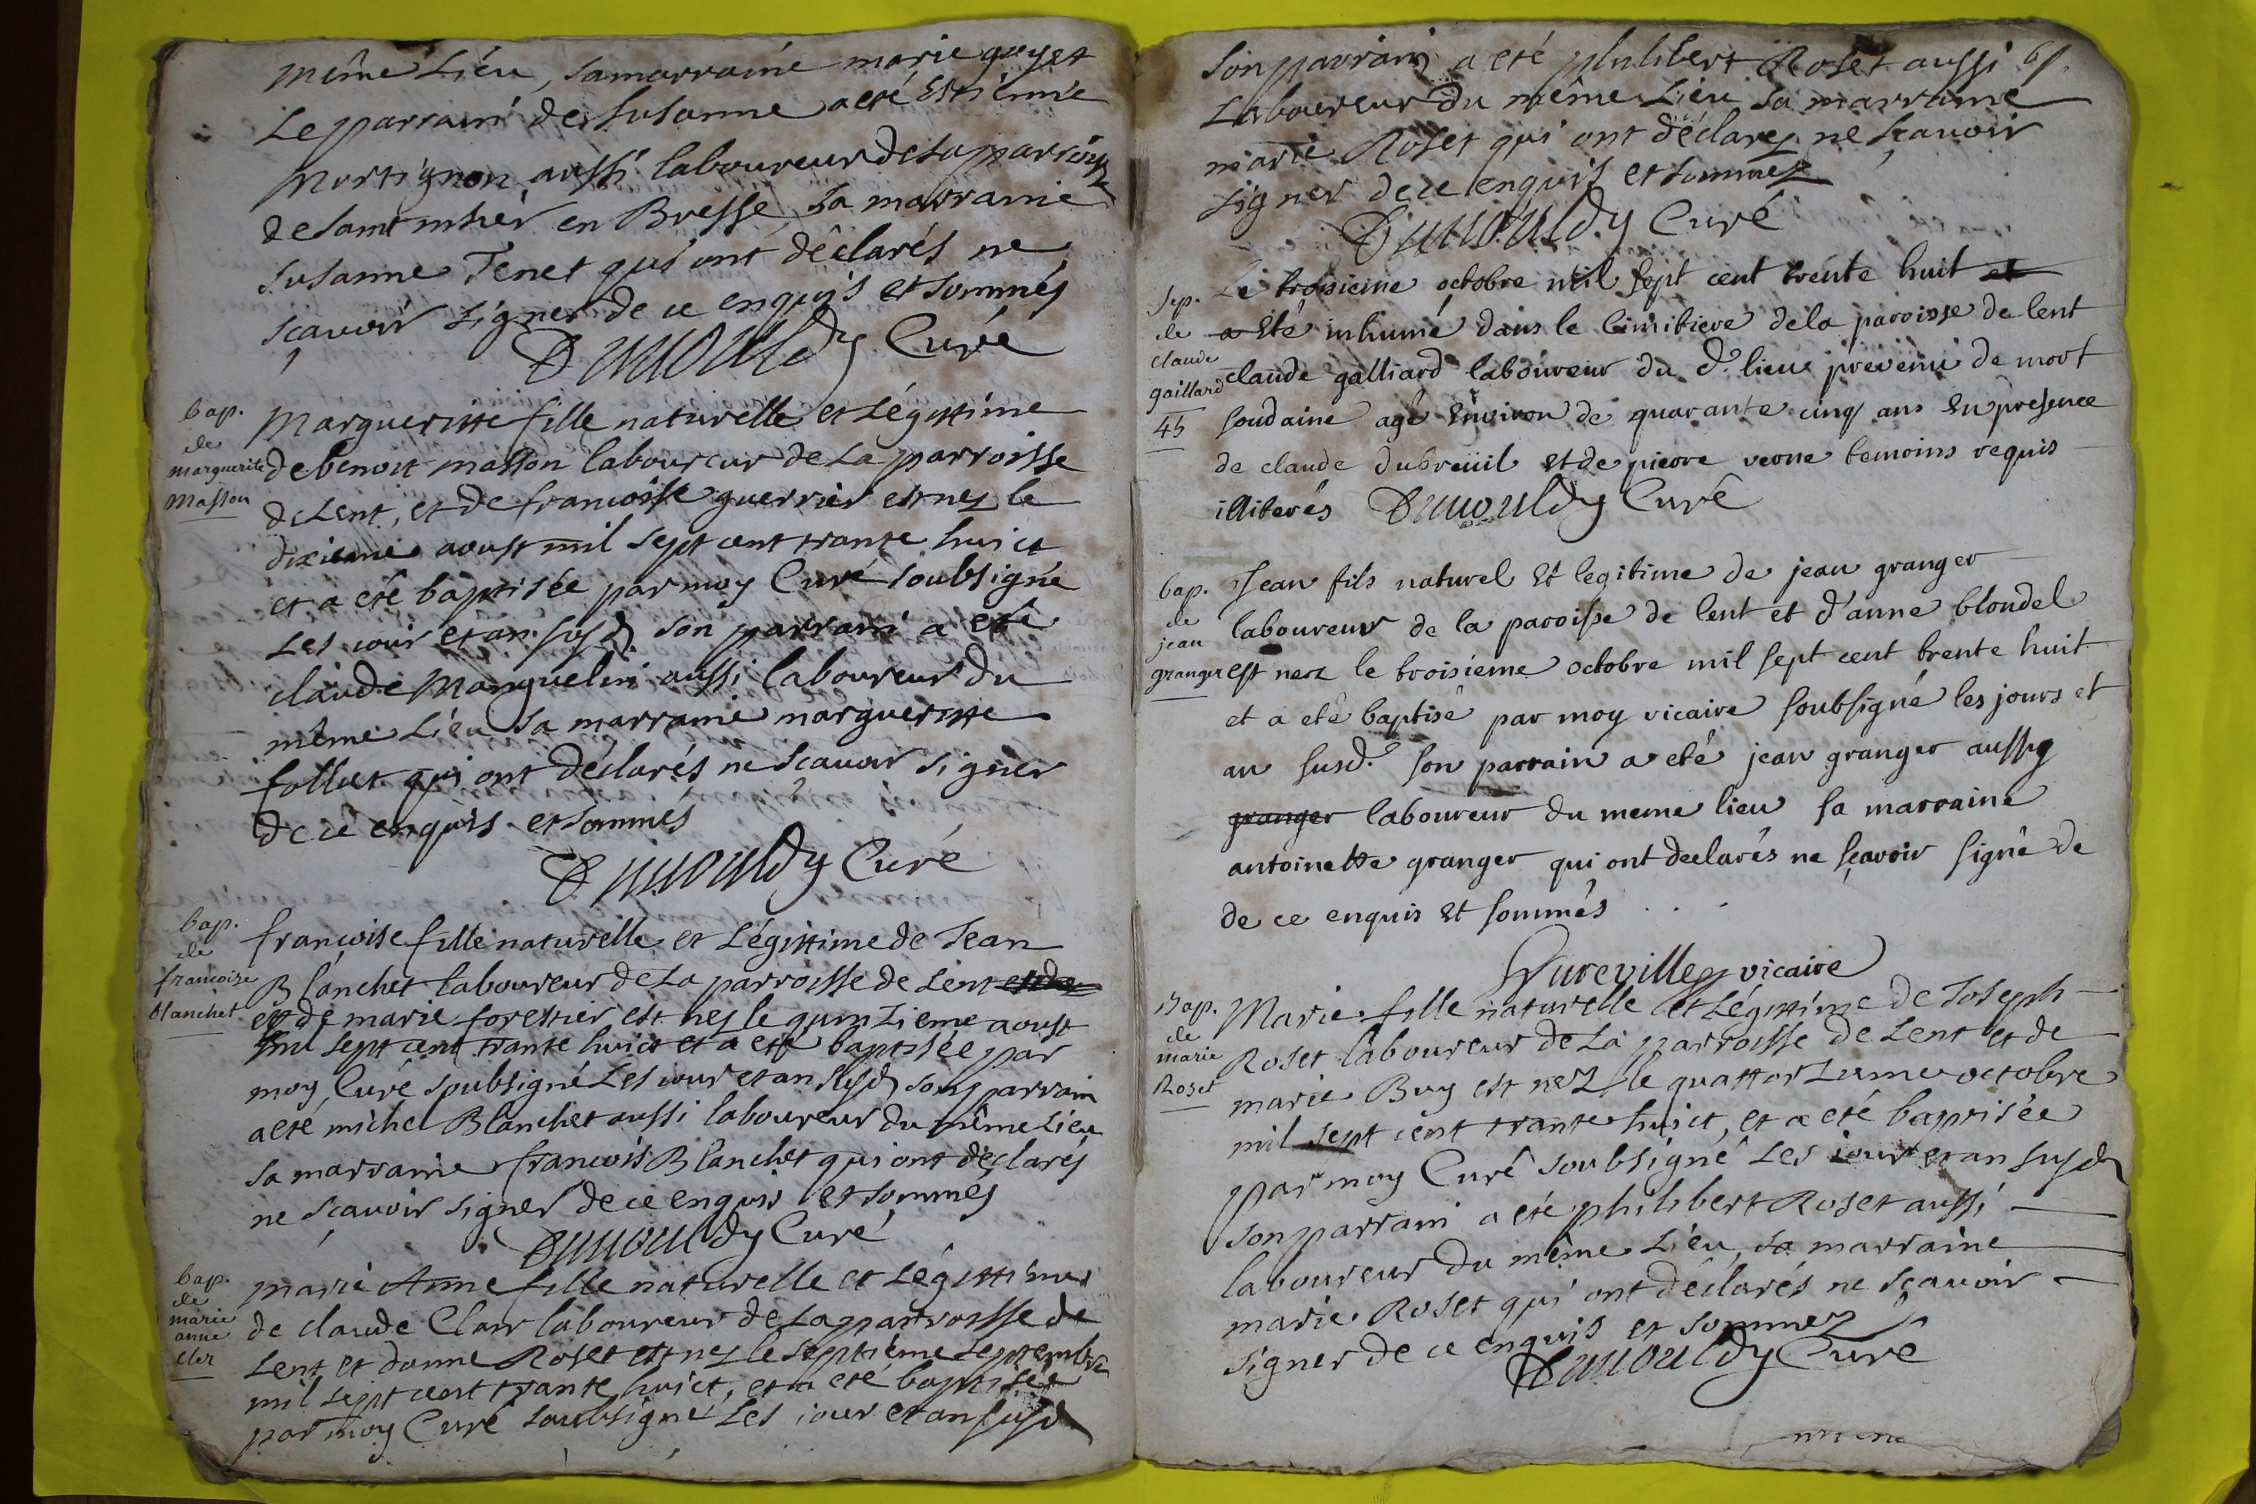 même Liéu, sa marraine marie guyet
Le parrain de Susanne a eté Estienne
mortignon aussi laboureur de la parroisse
de saint en Bresse, sa marraine
susanne Tenet qui ont déclarés ne
scavoir signer de ce enquis et sommés
Curé
bap.
de
marguerite
masson
Margueritte fille naturelle et Légittime
de benoit masson laboureur de La parroisse
de Lent, et de francoise guerrier est nez le
dixieme aoust mil sept cent trante huict
et a eté baptisée par moy Curé soubsigné
Les iour et an susd. son parrain a eté
claude Manguelin aussi laboureur du
même Liéu sa marraine margueritte
folliet qui ont déclarés ne scavoir signer
de ce enquis et sommés
Curé
bap.
de
francoise
blanchet
francoise fille naturelle et Légittime de Jean
Blanchet laboureur de La parroisse de Lent et de
et de marie forestier est nez le quinzieme aoust
mil sept cent trante huict et a eté baptisée par
moy Curé soubsigné Les iour et an susd son parrain
a eté michel Blanchet aussi laboureur du même Lieu
sa marraine francois Blanchet qui ont déclarés
ne scavoir signer de ce enquis et sommés
Curé
bap.
de
marie
anne
cler
marie Anne fille naturelle et Légittime
de claude Clair laboureur de La parroisse de
Lent et d'anne Roset est nez le septiéme septembre
mil sept cent trante huict, et a eté baptisée
par moy Curé soubsigné Les iour et an susd
son parrain a eté philibert Roset aussi
Laboureur du même Lieu sa marraine
marie Roset qui ont déclarez ne scavoir
signer de ce enquis et sommez
Curé
sep.
de
claude
gaillard
45
Le troisieme octobre mil sept cent trente huit et
a eté inhumé dans le cimitiere de la paroisse de lent
claude galliard laboureur du d. lieu prevenu de mort
soudaine agé environ de quarante cinq ans en presence
de claude dubreüil et de pierre verne temoins requis
illiterés Curé
bap.
de
jean
granger
Jean fils naturel et legitime de jean granger
laboureur de la paroisse de lent et d'anne blondel
est nez le troisieme octobre mil sept cent trente huit
et a eté baptisé par moy vicaire soubsigné les jours et
an susd. son parrain a eté jean granger aussy
granger laboureur du meme lieu sa marraine
antoinette granger qui ont declarés ne sçavoir signé de
de ce enquis et sommés
vicaire
Bap.
de
marie
Roset
Marie fille naturelle et Légittime de Joseph
Roset laboureur de La parroisse de Lent et de
marie Buy est nez le quattorzieme octobre
mil sept cent trante huict, et a eté baptisée
par moy Curé soubsigné Les iour et an susd
son parrain a eté philibert Roset aussi
laboureur du même Liéu, sa marraine
marie Roset qui ont déclarés ne scavoir
signer de ce enquis et sommez
Curé